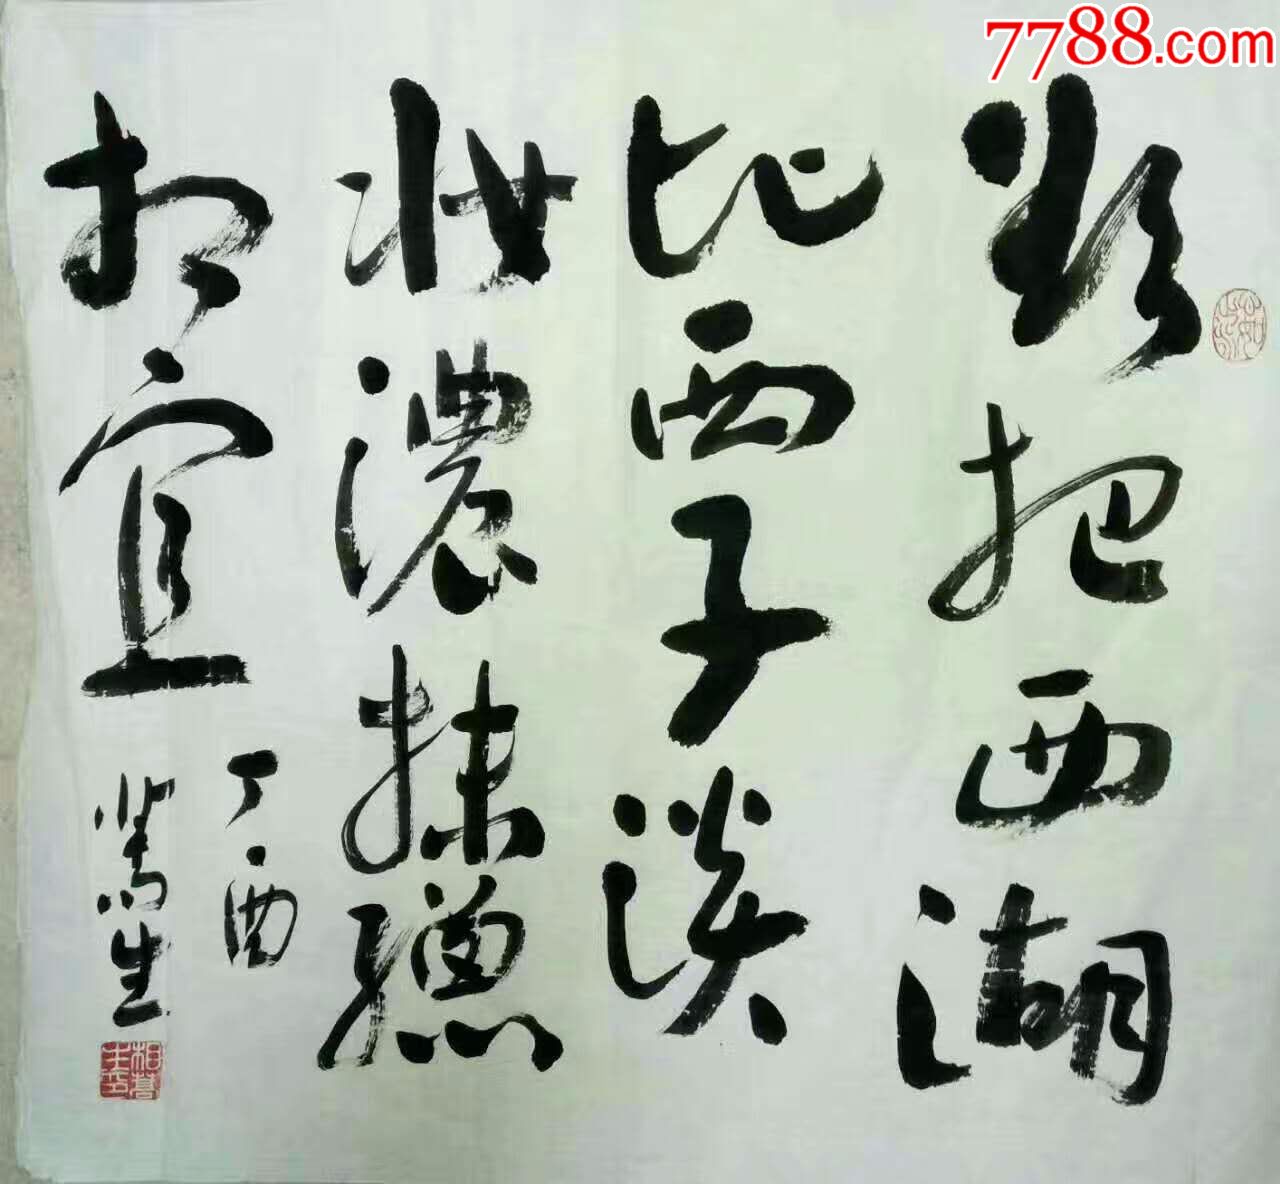 7788.com
欲把西湖
比西子淡
妝濃抹總
相宜
丁酉
生